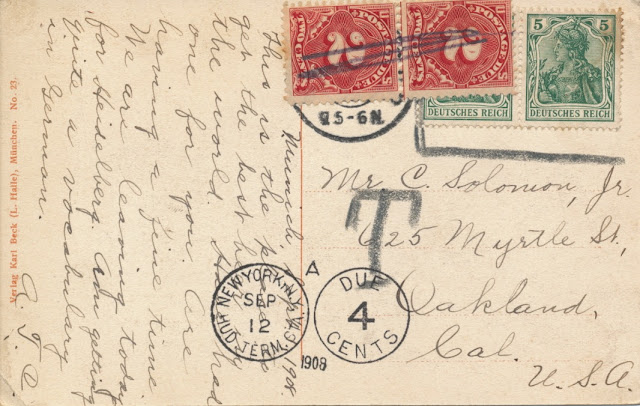 Munich,
This is the place to
get the best beer
the world. had
one for you. Are
having a fine time
We are leaving today
for Heidelberg. Am getting
quite a vocabulary
in German.
Verlag Karl Beck (L. Halle), München. No. 23.
POSTAGE DUE
2
POSTAGE DUE
2
5
DEUTSCHES REICH
DEUTSCHES REICH
5-6N.
T
Mr. C. Solomon, Jr.
625 Myrtle St,
Oakland,
Cal.
U. S. A.
NEW YORK, N.Y.
SEP
12
HUD. TERM.
A
1908
DUE
4
CENTS